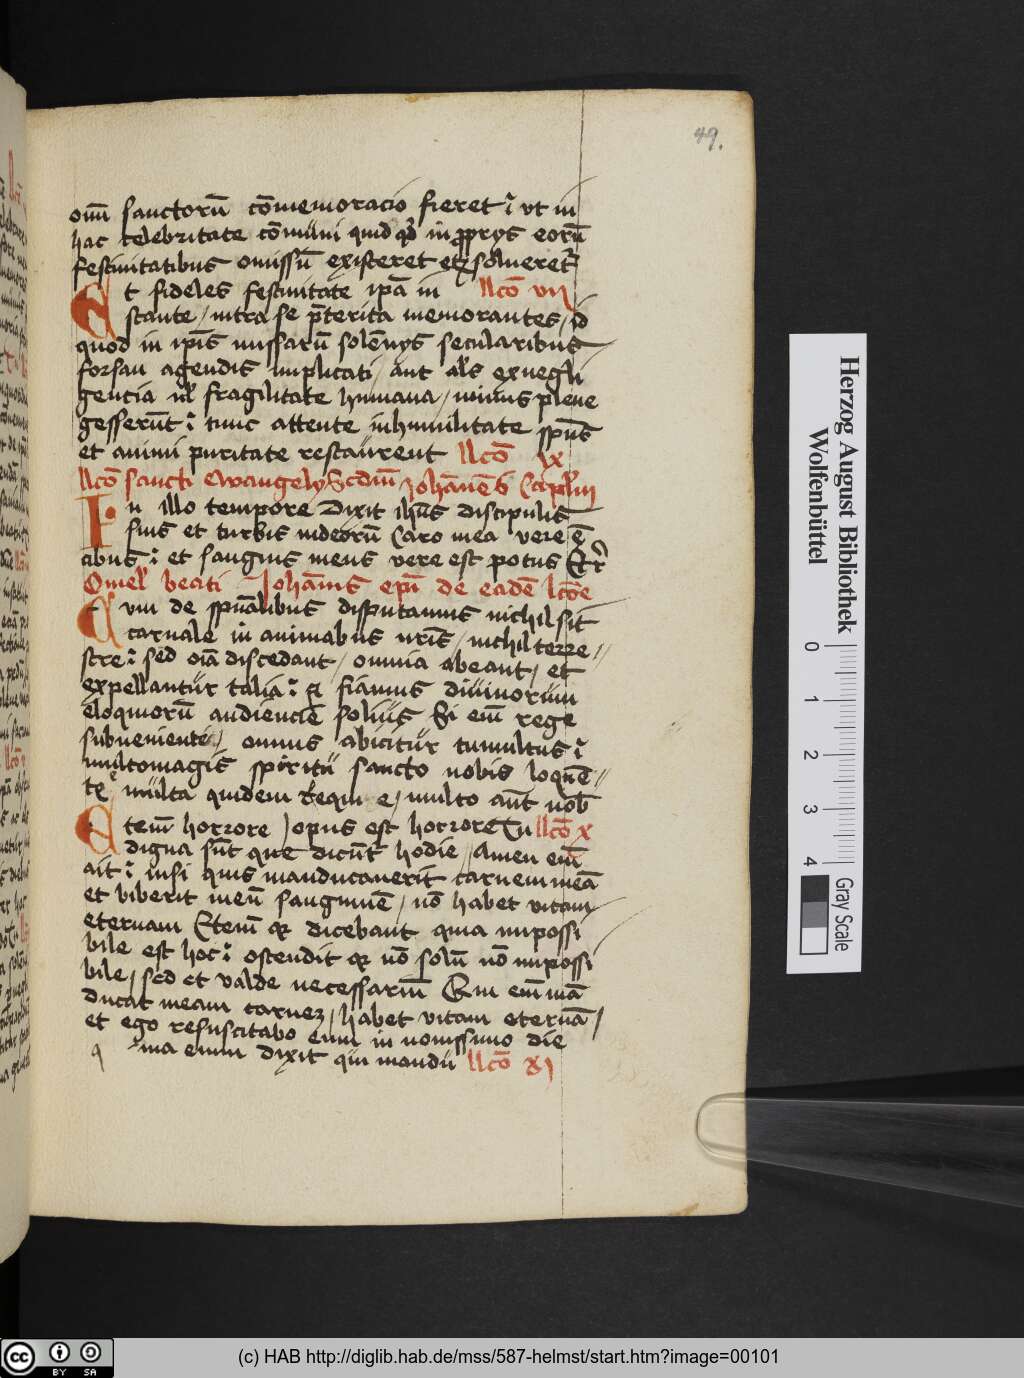 49.
om̄ sanctorū cōmemoracio fieret ī vt in
hac celebritate cōmūni quid qd in pprys eorū
festiuitatibus omissū existeret solueretr
t fideles festiuitate ipā in llcō vııj
stante / intra se pͬterita memorantes / id
quod in ipīs missarū solēnys secularibus
forsan agendis implicati / aut als ex negli
gencia ul fragilitate humana / minus plene
gesserūt ī tunc attente in humilitate spūs
et animi puritate restaurent llcō ıx
llcō sancti Ewangely Scdm̄ Johānēs Caplm
In illo tempore Dixit ihūs discipulis
suis et turbis iudeorū Caro mea vere ē
cibus ī et sanguis meus vere est potus Etcr
Omel beati Johānis epī de eadē lcōe
Cum de spūalibus disputamus nichil sit
carnale in animabus nrīs / nichil terre//
stre ī sed oīa discedant / omnia abeant / et
expellantur talia ī fiamus diuinorum
eloquiorū audiencie solius Si em̄ rege
subueniente / omnis abicitur tumultus ī
multomagis spiritu sancto nobis loquē//
te multa quidem e / multo aūt nob
Etem̄ horrore / opus est horrore Tu llcō x
digna sūt que dicūtr hodie / Amen em̄
ait ī nisi quis manducauerit carnem meā
et biberit meū sanguinē / nō habet vitam
eternam Etem̄ qr dicebant quia impossi
bile est hoc ī ostendit qr nō solū nō impossi
bile / sed et valde necessariū Qui em̄ mā
ducat meam carnez / habet vitam eternā /
et ego resuscitabo eum in nouissimo die
q via enim dixit qui mandu llcō xj
Herzog August Bibliothek
Wolfenbüttel
0 1 2 3 4
Gray Scale
cc BY SA
(c) HAB http://diglib.hab.de/mss/587-helmst/start.htm?image=00101